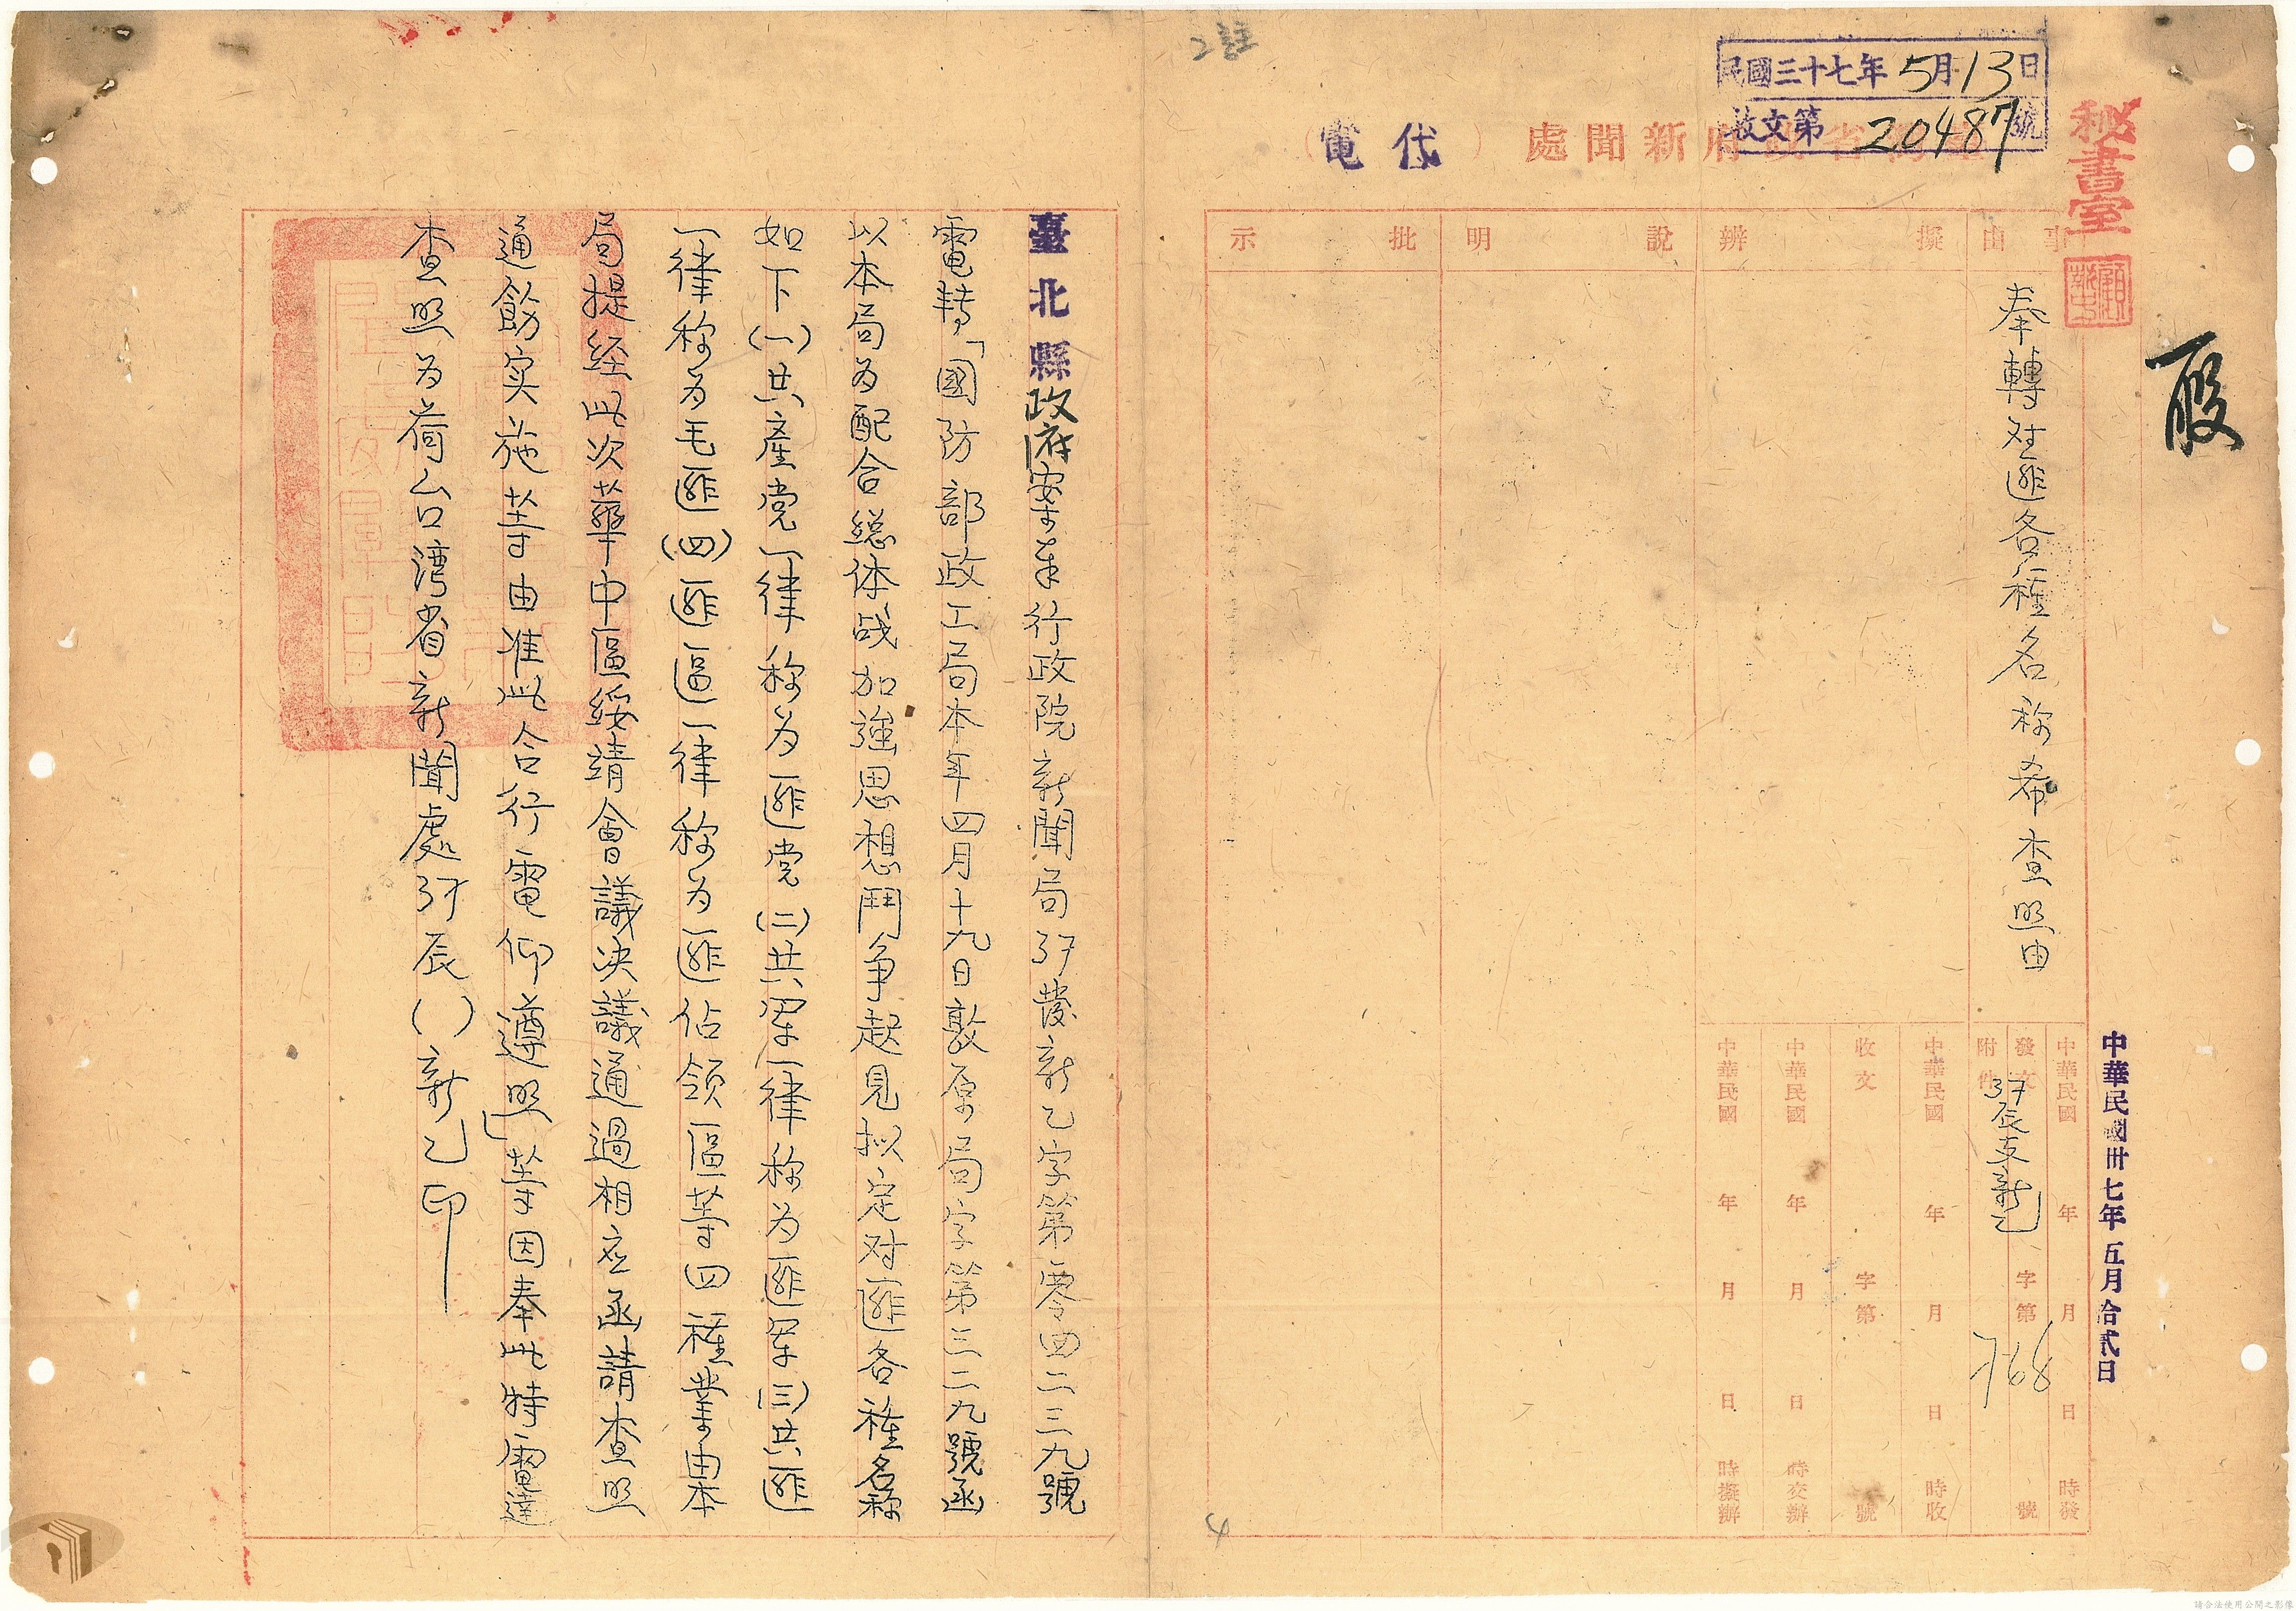 2註
民國三十七年5月13日
收文第20487號
秘書室
處聞新府政省灣臺(代電)
事由
擬辦
說明
批示
奉轉对匪各種名称希查照由
中華民國卅七年五月拾貳日
中華民國 年 月 日 時發
發文 字第 號
37辰支新乙
768
附件
中華民國 年 月 日 時收
收文 字第 號
中華民國 年 月 日 時交辦
中華民國 年 月 日 時擬辦
臺北縣政府案奉行政院新聞局37發新乙字第零四二三九號
電轉「國防部政工局本年四月十九日敷原局字第三二九號函
以本局为配合総体战加強思想鬥争起見拟定对匪各種名称
如下(一)共產党一律称为匪党(二)共军一律称为匪军(三)共匪
一律称为毛匪(四)匪區一律称为匪佔領區等四種業由本
局提经此次華中區綏靖會議決議通過相应函請查照
通飭实施等由准此合行電仰遵照」等因奉此特電達
查照为荷台湾省新聞處37辰()新乙印
4
請合法使用公開之影像